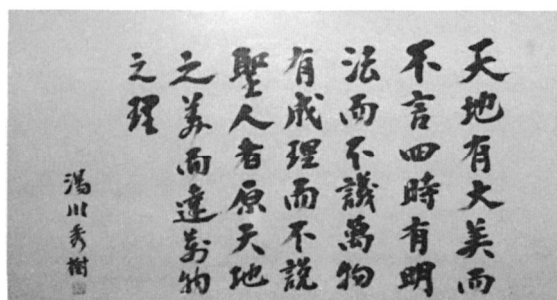 天地有大美而
不言四時有明
法而不議萬物
有成理而不説
聖人者原天地
之美而達萬物
之理
湯川秀樹